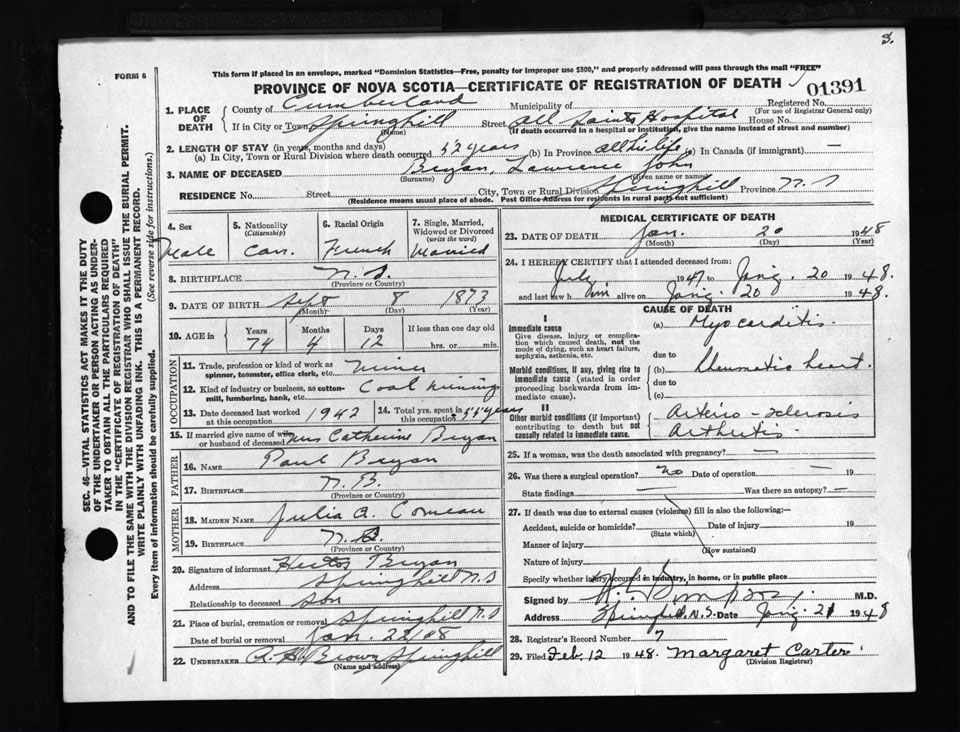 S.
FORM 6
This form if placed in an envelope, marked "Dominion Statistics—Free, penalty for improper use $300," and properly addressed will pass through the mail "FREE"
PROVINCE OF NOVA SCOTIA—CERTIFICATE OF REGISTRATION OF DEATH
01391
Registered No.
(For use of Registrar General only)
1. PLACE OF DEATH
County of Cumberland Municipality of
If in City or Town Springhill Street All Saints Hospital House No.
(Name) (If death occurred in a hospital or institution, give the name instead of street and number)
2. LENGTH OF STAY (in years, months and days)
(a) In City, Town or Rural Division where death occurred 52 years (b) In Province all his life (c) In Canada (if immigrant) —
3. NAME OF DECEASED Bryan, Lawrence John
(Surname) (Given name or names)
RESIDENCE No. Street City, Town or Rural Division Springhill Province N.S
(Residence means usual place of abode. Post Office Address for residents in rural parts not sufficient)
4. Sex Male
5. Nationality (Citizenship) Can.
6. Racial Origin French
7. Single, Married, Widowed or Divorced (write the word) Married
8. BIRTHPLACE N.S.
(Province or Country)
9. DATE OF BIRTH Sept 8 1873
(Month) (Day) (Year)
10. AGE in Years Months Days If less than one day old
74 4 12 hrs. or min.
OCCUPATION
11. Trade, profession or kind of work as spinner, teamster, office clerk, etc. Miner
12. Kind of industry or business, as cotton-mill, lumbering, bank, etc. Coal mining
13. Date deceased last worked at this occupation 1942
14. Total yrs. spent in this occupation 55 years
15. If married give name of wife or husband of deceased Mrs Catherine Bryan
FATHER
16. NAME Paul Bryan
17. BIRTHPLACE N.B.
(Province or Country)
MOTHER
18. MAIDEN NAME Julia A. Comeau
19. BIRTHPLACE N.B.
(Province or Country)
20. Signature of informant Hector Bryan
Address Springhill N.S
Relationship to deceased son
21. Place of burial, cremation or removal Springhill N.S
Date of burial or removal Jan. 22/48
22. UNDERTAKER A. H. Brown Springhill
(Name and address)
MEDICAL CERTIFICATE OF DEATH
23. DATE OF DEATH Jan. 20 1948
(Month) (Day) (Year)
24. I HEREBY CERTIFY that I attended deceased from:
July 1947 to Jan. 20 1948.
and last saw him alive on Jan. 20 1948.
CAUSE OF DEATH
I
Immediate cause
Give disease, injury or complication which caused death, not the mode of dying, such as heart failure, asphyxia, asthenia, etc.
(a) Myocarditis.
due to
Morbid conditions, if any, giving rise to immediate cause (stated in order proceeding backwards from immediate cause).
(b) Rheumatic heart.
due to
(c)
II
Other morbid conditions (if important) contributing to death but not causally related to immediate cause.
Arterio-sclerosis
Arthritis.
25. If a woman, was the death associated with pregnancy? —
26. Was there a surgical operation? no Date of operation — 19
State findings — Was there an autopsy? —
27. If death was due to external causes (violence) fill in also the following:—
Accident, suicide or homicide? Date of injury 19
(State which)
Manner of injury
(How sustained)
Nature of injury
Specify whether injury occurred in industry, in home, or in public place
Signed by Simpson M.D.
Address Springhill, N.S. Date Jan. 21 1948
28. Registrar's Record Number 7
29. Filed Feb. 12 1948. Margaret Carter
(Division Registrar)
SEC. 46—VITAL STATISTICS ACT MAKES IT THE DUTY
OF THE UNDERTAKER OR PERSON ACTING AS UNDER-
TAKER TO OBTAIN ALL THE PARTICULARS REQUIRED
IN THE "CERTIFICATE OF REGISTRATION OF DEATH"
AND TO FILE THE SAME WITH THE DIVISION REGISTRAR WHO SHALL ISSUE THE BURIAL PERMIT.
WRITE PLAINLY WITH UNFADING INK. THIS IS A PERMANENT RECORD.
Every item of information should be carefully supplied. (See reverse side for instructions.)